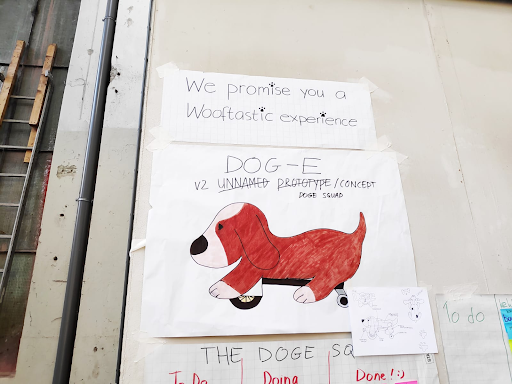 We promise you a
Wooftastic experience
DOG-E
V2 UNNAMED PROTOTYPE/CONCEPT
DOGE SQUAD
THE DOGE SQ
To Do
Doing
Done! :)
To do